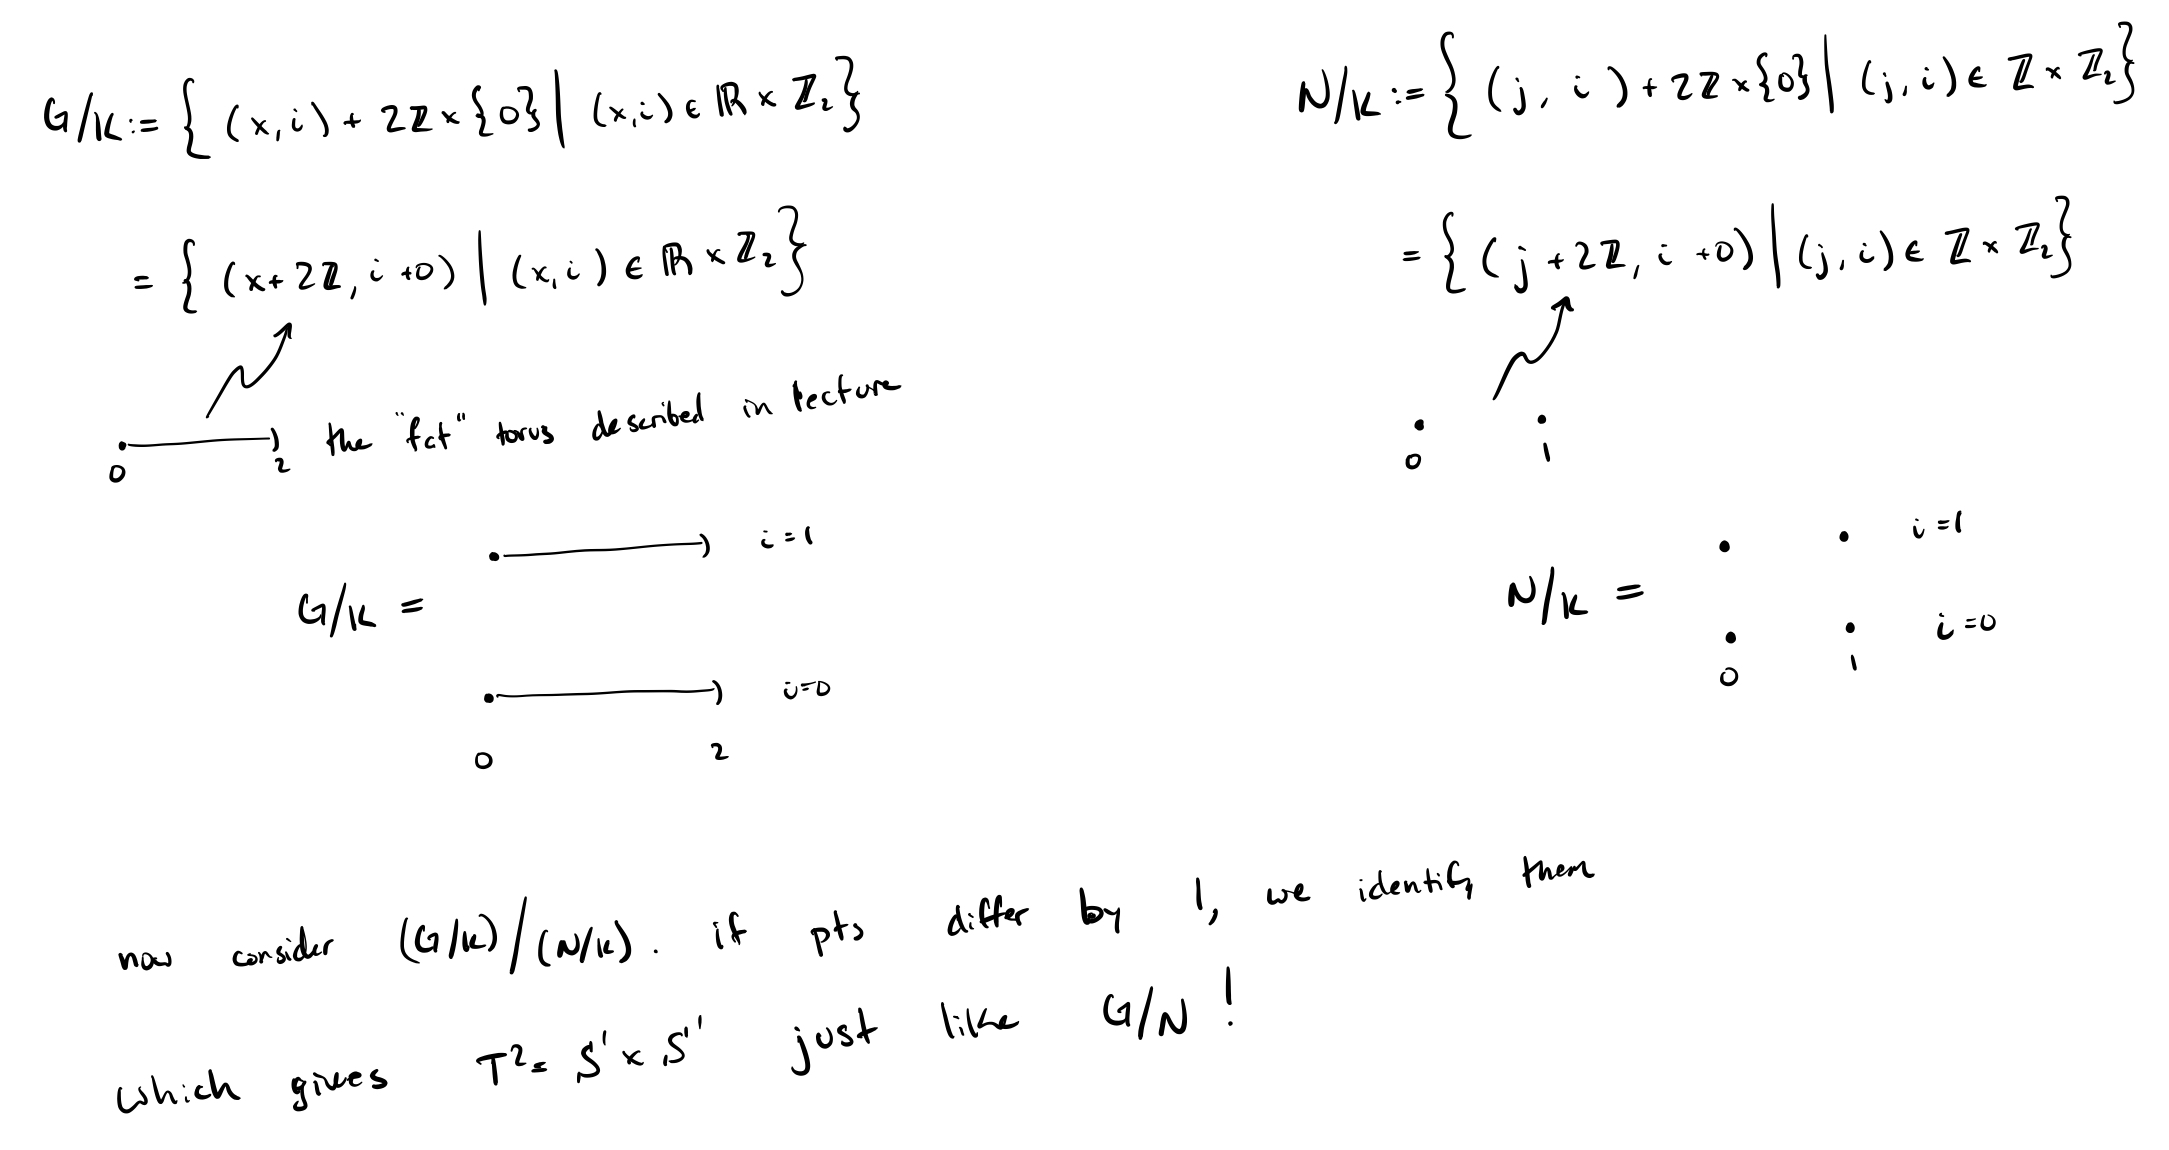 G/K := { (x,i) + 2ℤ × {0} | (x,i) ∈ ℝ × ℤ₂ }
= { (x+2ℤ, i+0) | (x,i) ∈ ℝ × ℤ₂ }
0 2 the "fat" torus described in lecture
i=1
G/K =
i=0
0 2
N/K := { (j, i) + 2ℤ × {0} | (j, i) ∈ ℤ × ℤ₂ }
= { (j + 2ℤ, i +0) | (j, i) ∈ ℤ × ℤ₂ }
0 1
i=1
N/K =
i=0
0 1
now consider (G/K)/(N/K). if pts differ by 1, we identify them
which gives T² = S¹ × S¹ just like G/N !